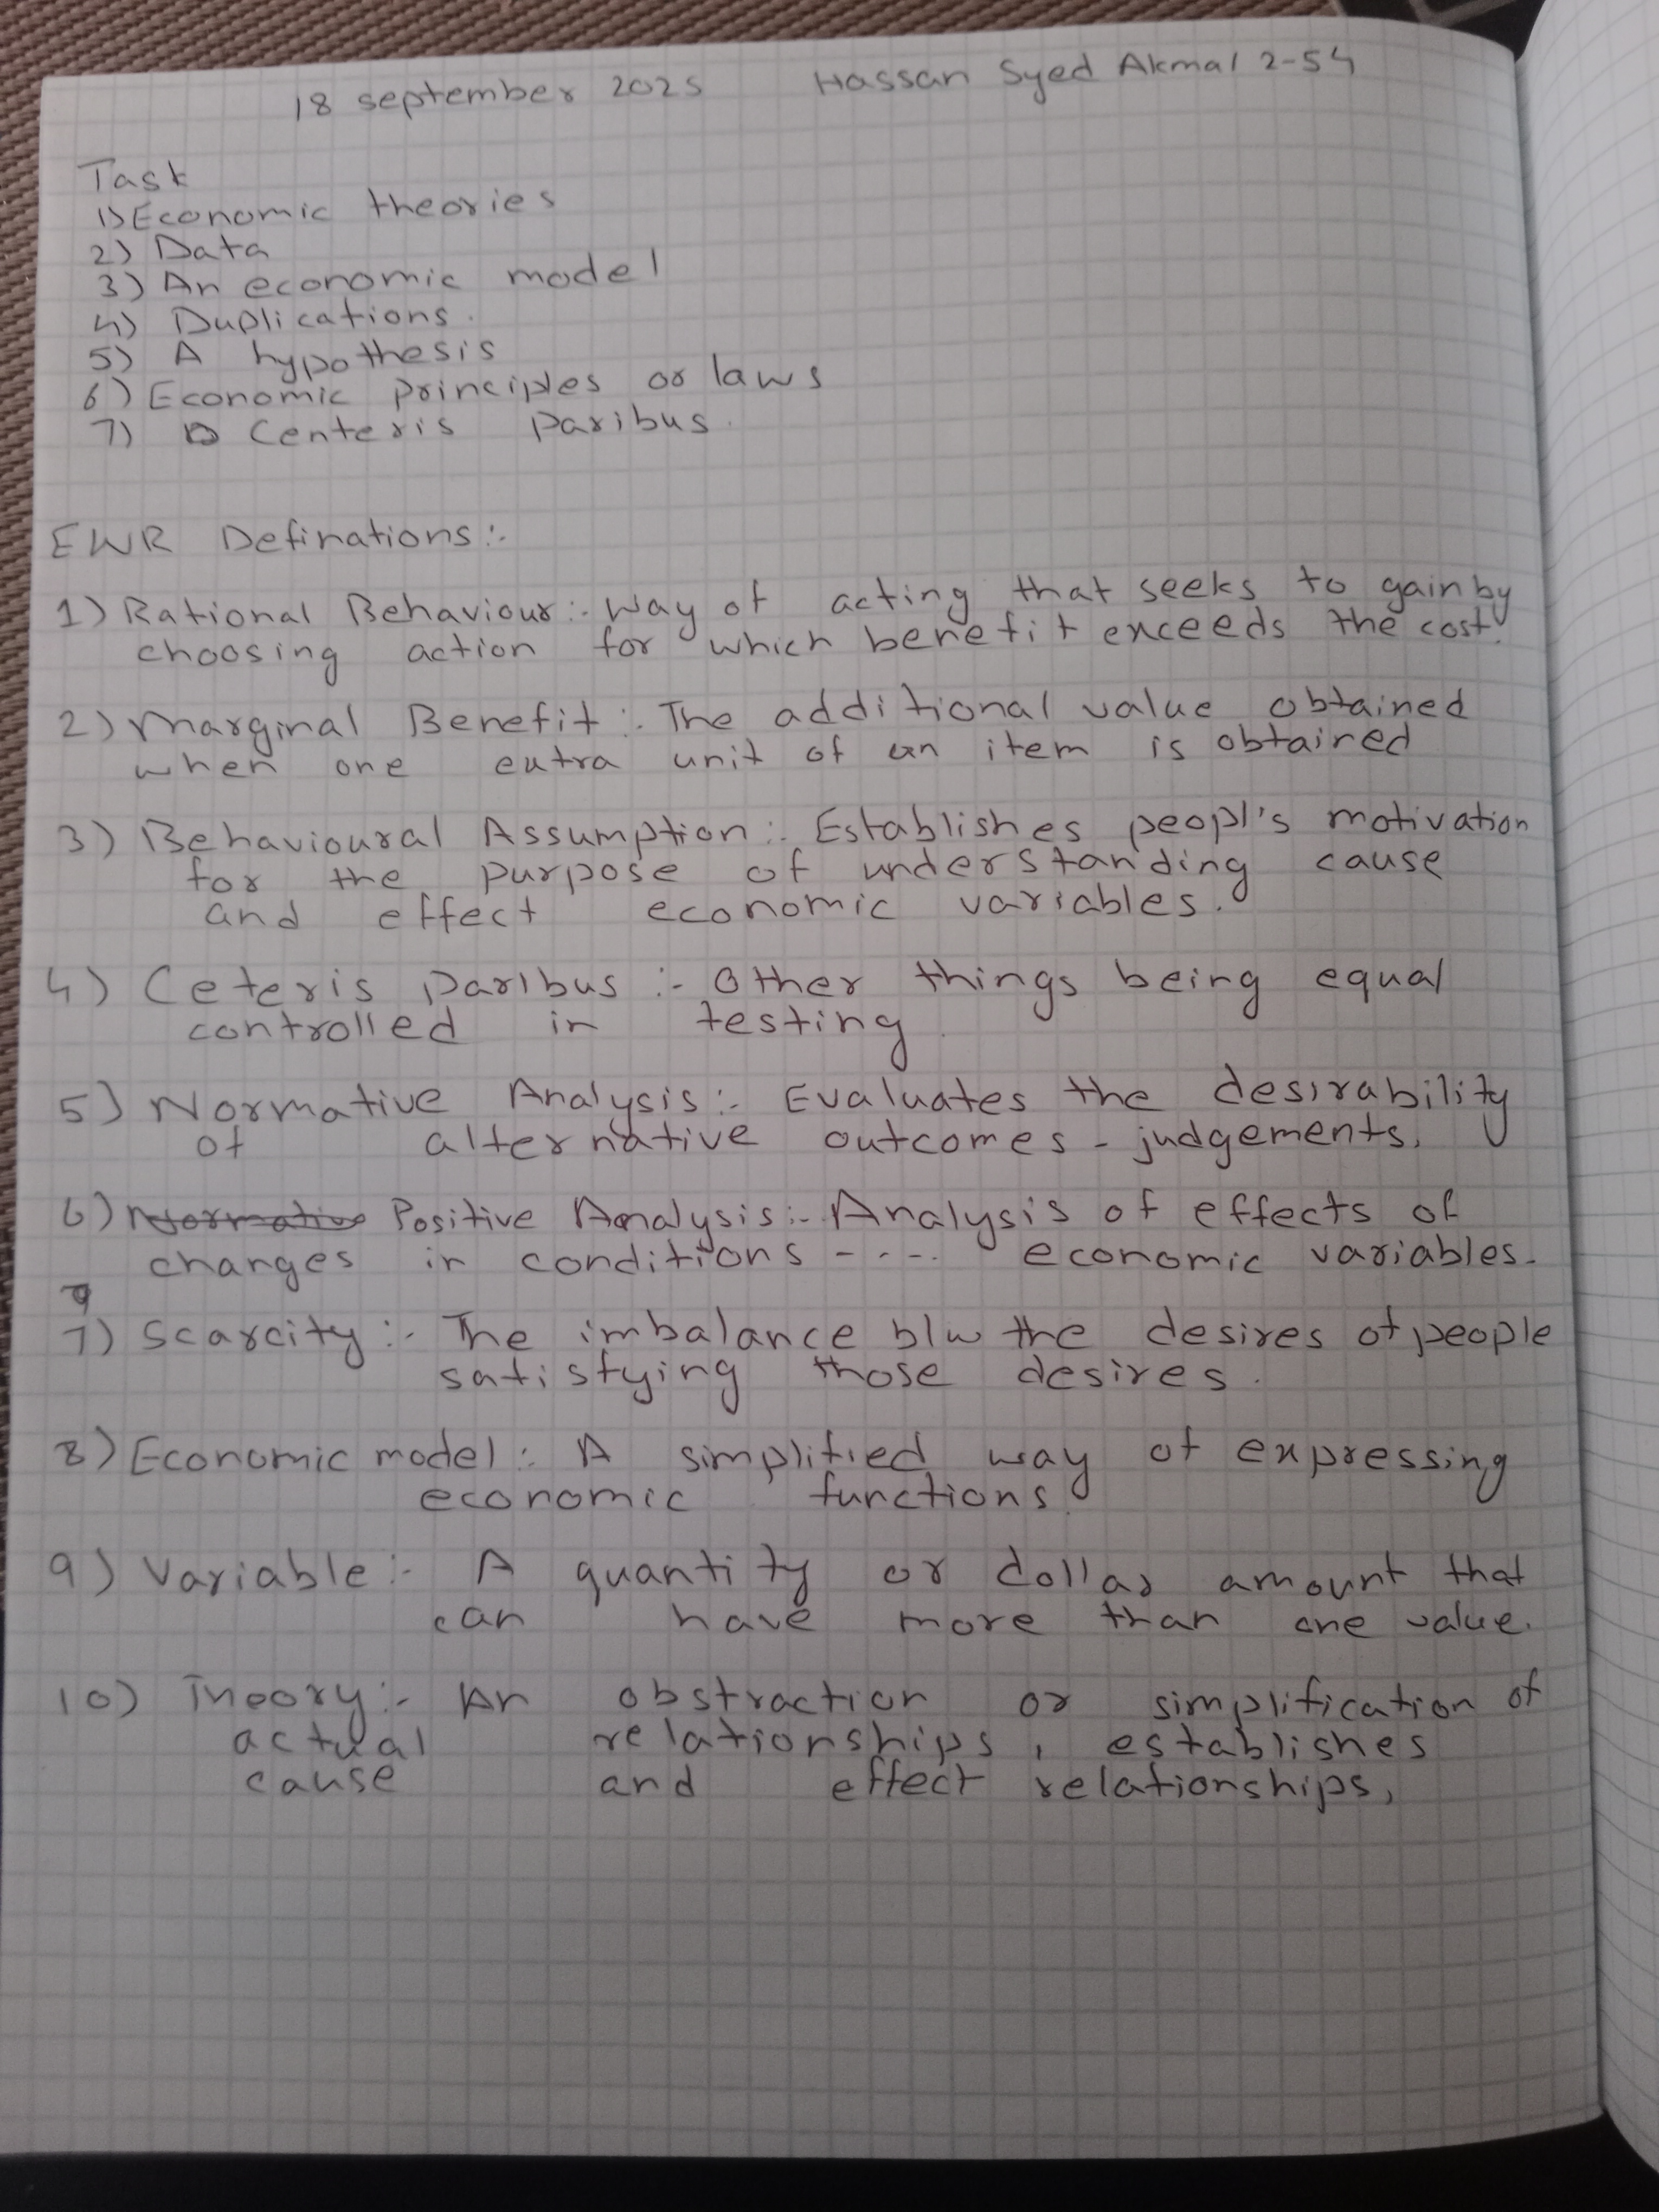 18 september 2025 Hassan Syed Akmal 2-54
Task
1) Economic theories
2) Data
3) An economic model
4) Duplications.
5) A hypothesis
6) Economic principles or laws
7) Centeris Paribus.
EWR Definations:-
1) Rational Behaviour:- Way of acting that seeks to gain by
choosing action for which benefit exceeds the cost.
2) Marginal Benefit:- The additional value obtained
when one extra unit of an item is obtained
3) Behavioural Assumption:- Establishes peopl's motivation
for the purpose of understanding cause
and effect economic variables.
4) Ceteris Paribus:- Other things being equal
controlled in testing.
5) Normative Analysis:- Evaluates the desirability
of alternative outcomes - judgements.
6) Normative Positive Analysis:- Analysis of effects of
changes in conditions - - - - economic variables.
7) Scarcity:- The imbalance b/w the desires of people
satisfying those desires.
8) Economic model:- A simplified way of expressing
economic functions.
9) Variable:- A quantity or dollar amount that
can have more than one value.
10) Theory:- An obstraction or simplification of
actual relationships, establishes
cause and effect relationships,